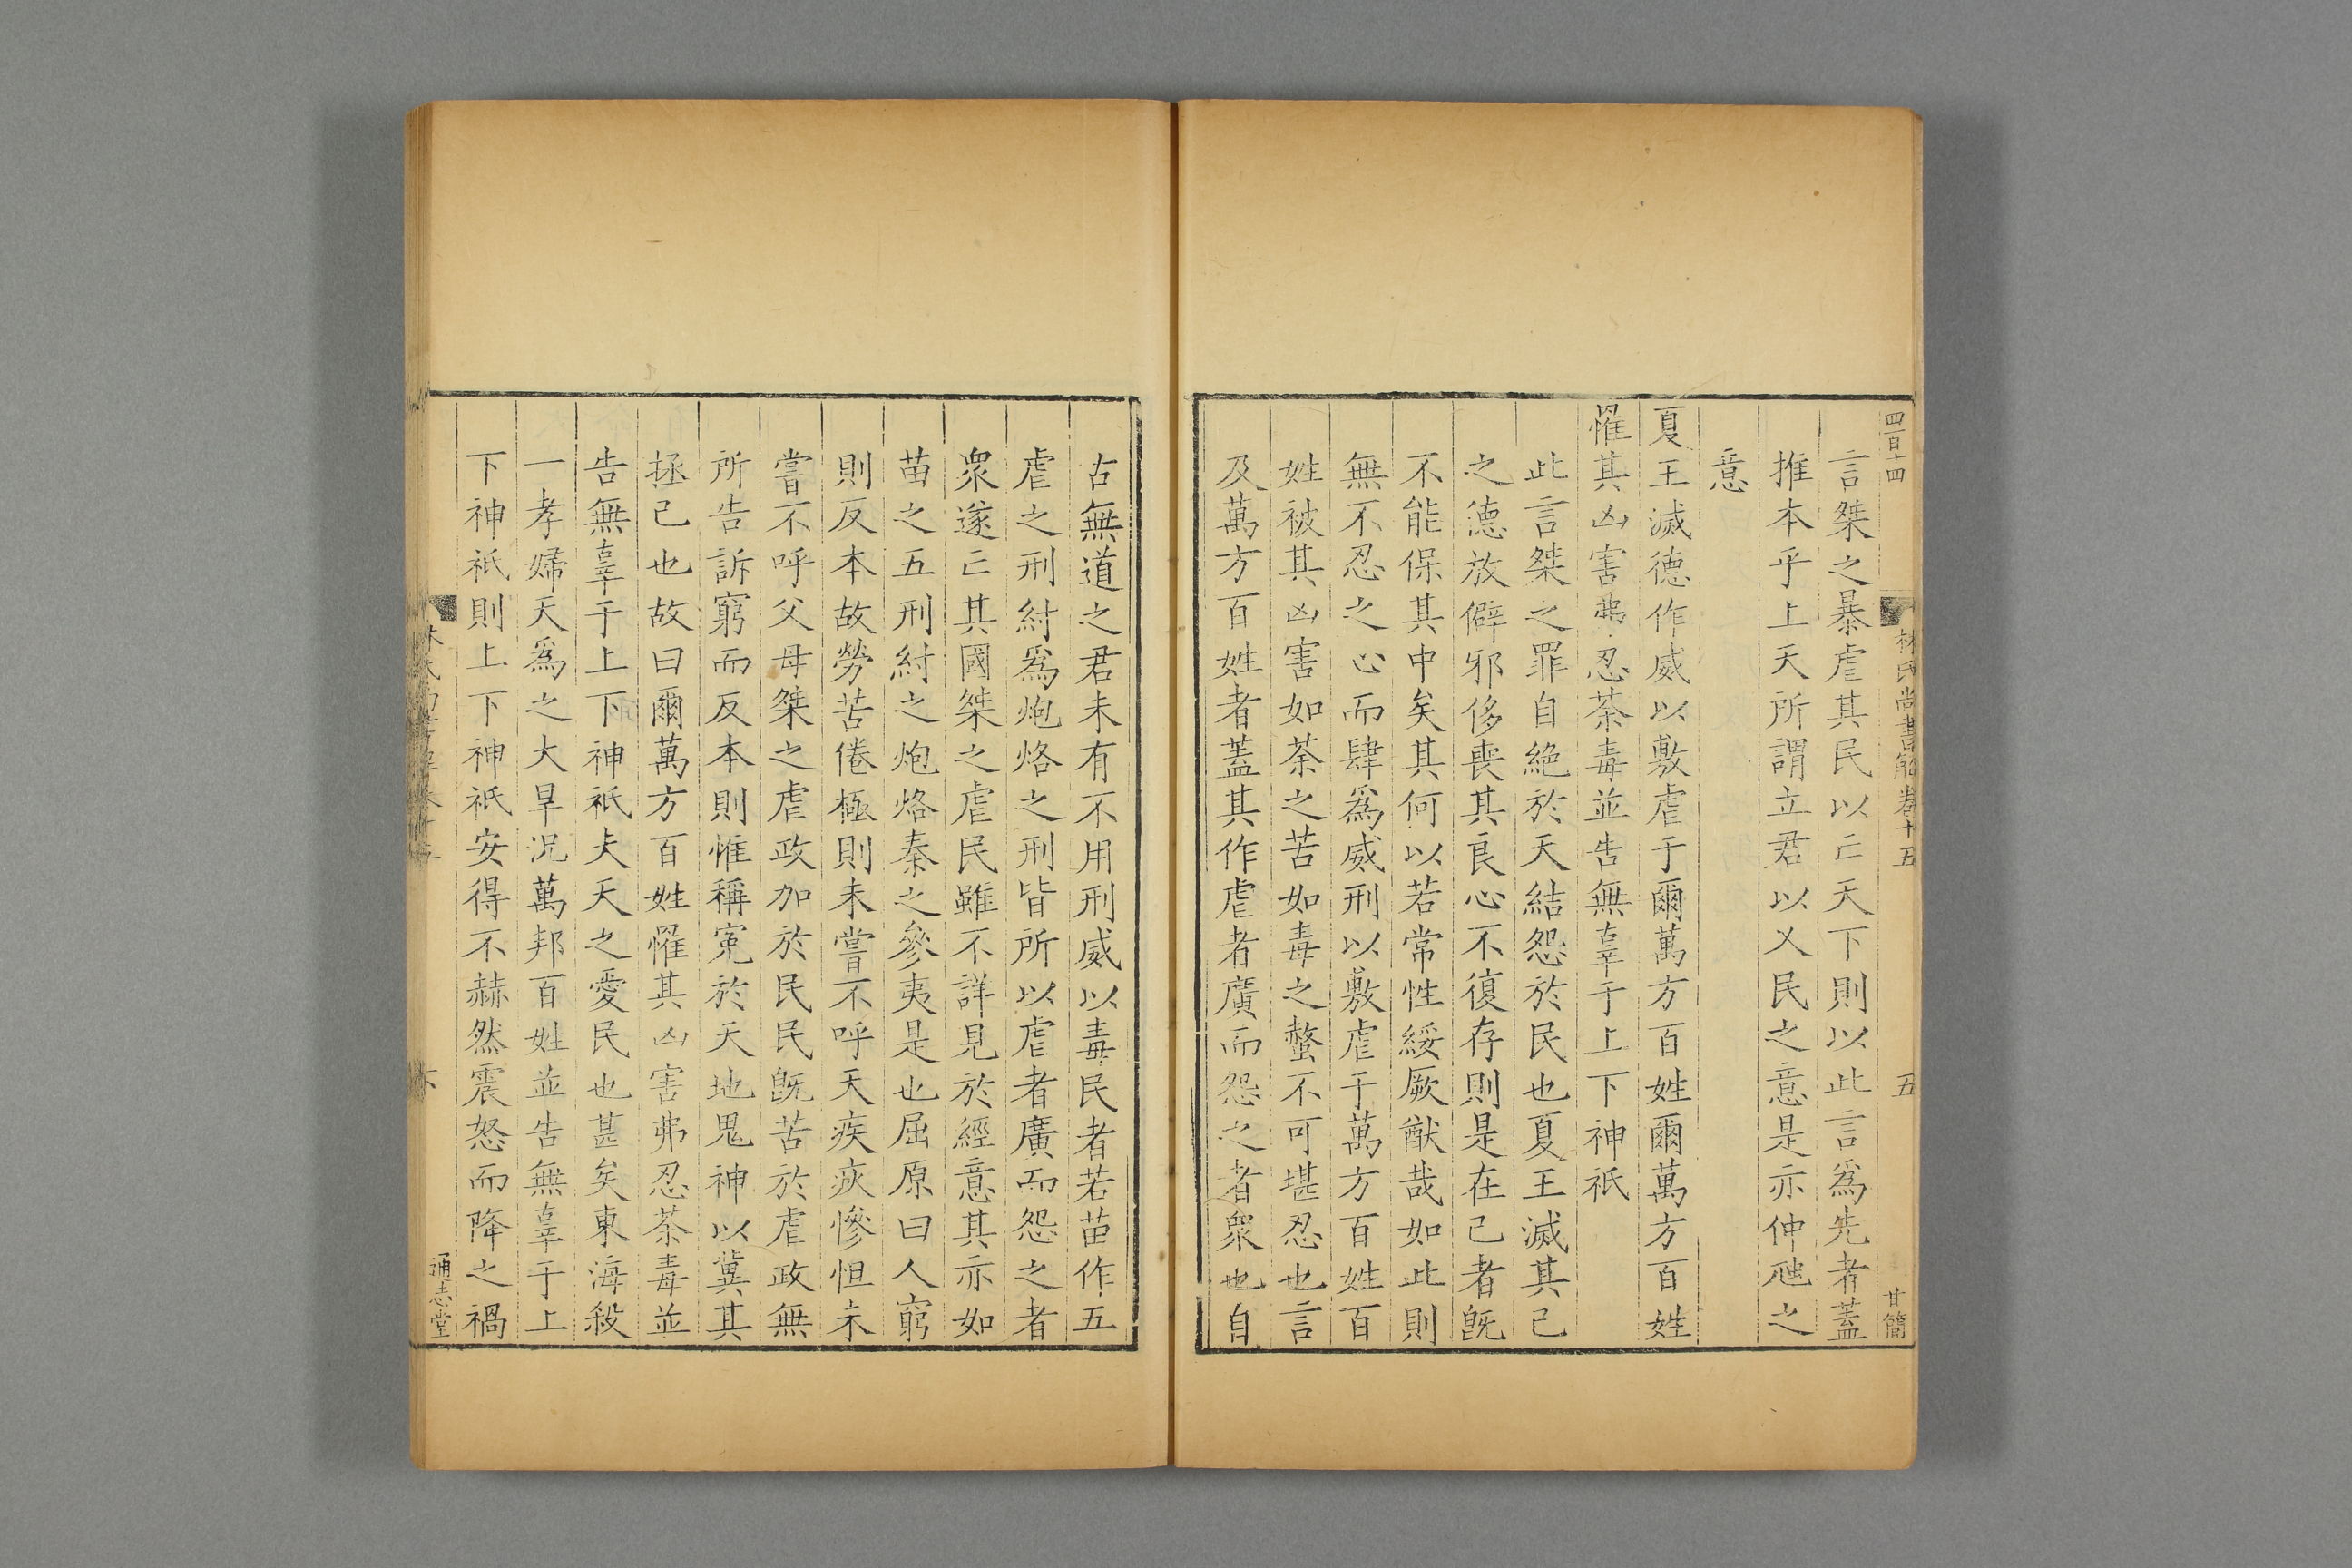 四百十四
林氏尚書解卷十五
五
甘簡
言桀之暴虐其民以亡天下則以此言爲先者蓋
推本乎上天所謂立君以乂民之意是亦仲虺之
意
夏王滅德作威以敷虐于爾萬方百姓爾萬方百姓
罹其凶害弗忍荼毒並告無辜于上下神祇
此言桀之罪自絶於天結怨於民也夏王滅其己
之德放僻邪侈喪其良心不復存則是在己者旣
不能保其中矣其何以若常性綏厥猷哉如此則
無不忍之心而肆爲威刑以敷虐于萬方百姓百
姓被其凶害如荼之苦如毒之螫不可堪忍也言
及萬方百姓者蓋其作虐者廣而怨之者衆也自
古無道之君未有不用刑威以毒民者若苗作五
虐之刑紂爲炮烙之刑皆所以虐者廣而怨之者
衆遂亡其國桀之虐民雖不詳見於經意其亦如
苗之五刑紂之炮烙秦之參夷是也屈原曰人窮
則反本故勞苦倦極則未嘗不呼天疾疢慘怛未
嘗不呼父母桀之虐政加於民民旣苦於虐政無
所告訴窮而反本則惟稱寃於天地鬼神以冀其
拯己也故曰爾萬方百姓罹其凶害弗忍荼毒並
告無辜于上下神祇夫天之愛民也甚矣東海殺
一孝婦天爲之大旱况萬邦百姓並告無辜于上
下神祇則上下神祇安得不赫然震怒而降之禍
通志堂